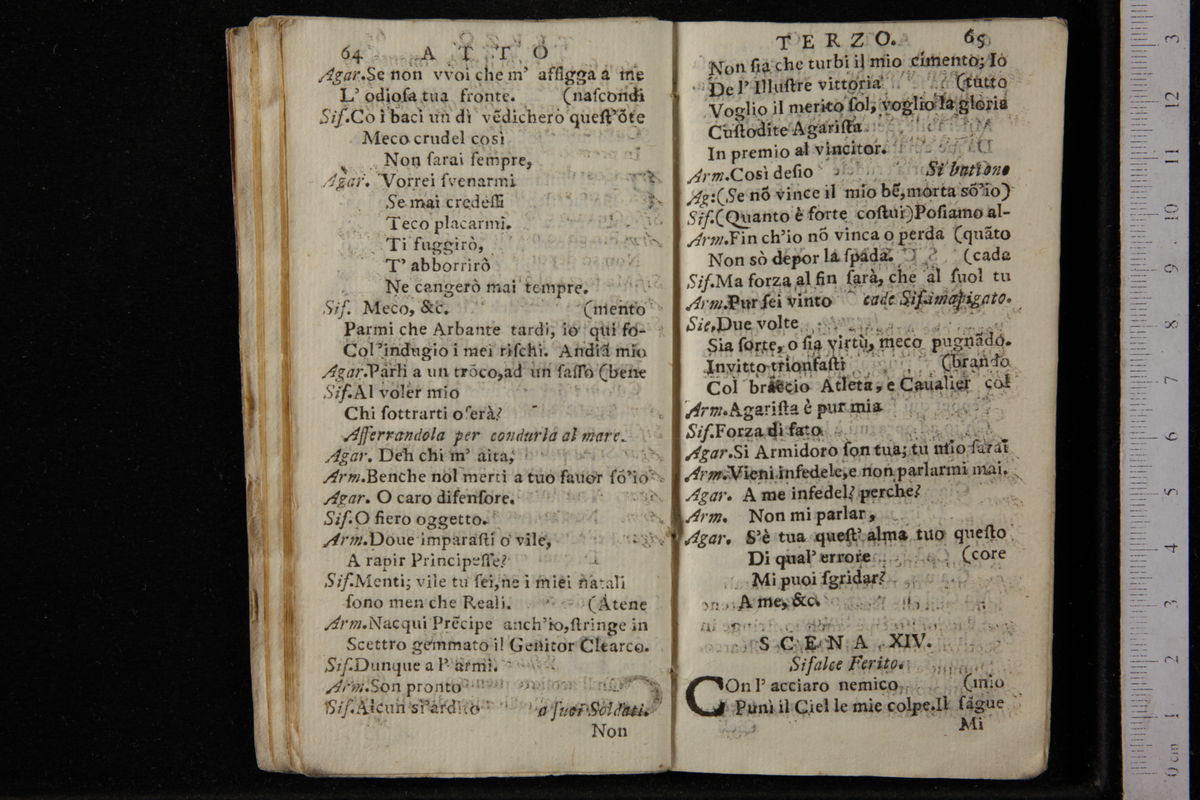 64 ATTO
Agar.Se non vvoi che m' affigga a me
L' odiosa tua fronte. (nascondi
Sif.Co i baci un dì vēdicherò quest'ōte
Meco crudel così
Non sarai sempre,
Agar. Vorrei svenarmi
Se mai credessi
Teco placarmi.
Ti fuggirò,
T' abborrirò
Ne cangerò mai tempre.
Sif. Meco, &c. (mento
Parmi che Arbante tardi, io qui fo-
Col'indugio i mei rischi. Andiā mio
Agar.Parli a un trōco,ad un sasso (bene
Sif.Al voler mio
Chi sottrarti oserà?
Afferrandola per condurla al mare.
Agar. Deh chi m' aita,
Arm.Benche nol merti a tuo favor sō'io
Agar. O caro difensore.
Sif.O fiero oggetto.
Arm.Doue imparasti o vile,
A rapir Principesse?
Sif.Menti; vile tu sei,ne i miei natali
sono men che Reali. (Atene
Arm.Nacqui Prēcipe anch'io,stringe in
Scettro gemmato il Genitor Clearco.
Sif.Dunque a l' armi.
Arm.Son pronto
Sif.Alcun sì ardito a suoi Soldati.
Non
TERZO. 65
Non sia che turbi il mio cimento; Io
De l' Illustre vittoria (tutto
Voglio il merito sol, voglio la gloria
Custodite Agarista
In premio al vincitor.
Arm.Così desio Si battono
Ag:(Se nō vince il mio bē,morta sō'io)
Sif.(Quanto è forte costui)Posiamo al-
Arm.Fin ch'io nō vinca o perda (quāto
Non sò depor la spada. (cada
Sif.Ma forza al fin sarà, che al suol tu
Arm.Pur sei vinto cade Sif.impiagato.
Sie,Due volte
Sia sorte, o sia virtù, meco pugnādo.
Invitto trionfasti (brando
Col braccio Atleta, e Caualier col
Arm.Agarista è pur mia
Sif.Forza di fato
Agar.Si Armidoro son tua; tu mio sarai
Arm.Vieni infedele,e non parlarmi mai.
Agar. A me infedel? perche?
Arm. Non mi parlar,
Agar. S'è tua quest' alma tuo questo
Di qual' errore (core
Mi puoi sgridar?
A me, &c.
SCENA XIV.
Sifalce Ferito.
COn l' acciaro nemico (mio
Punì il Ciel le mie colpe.Il sāgue
Mi